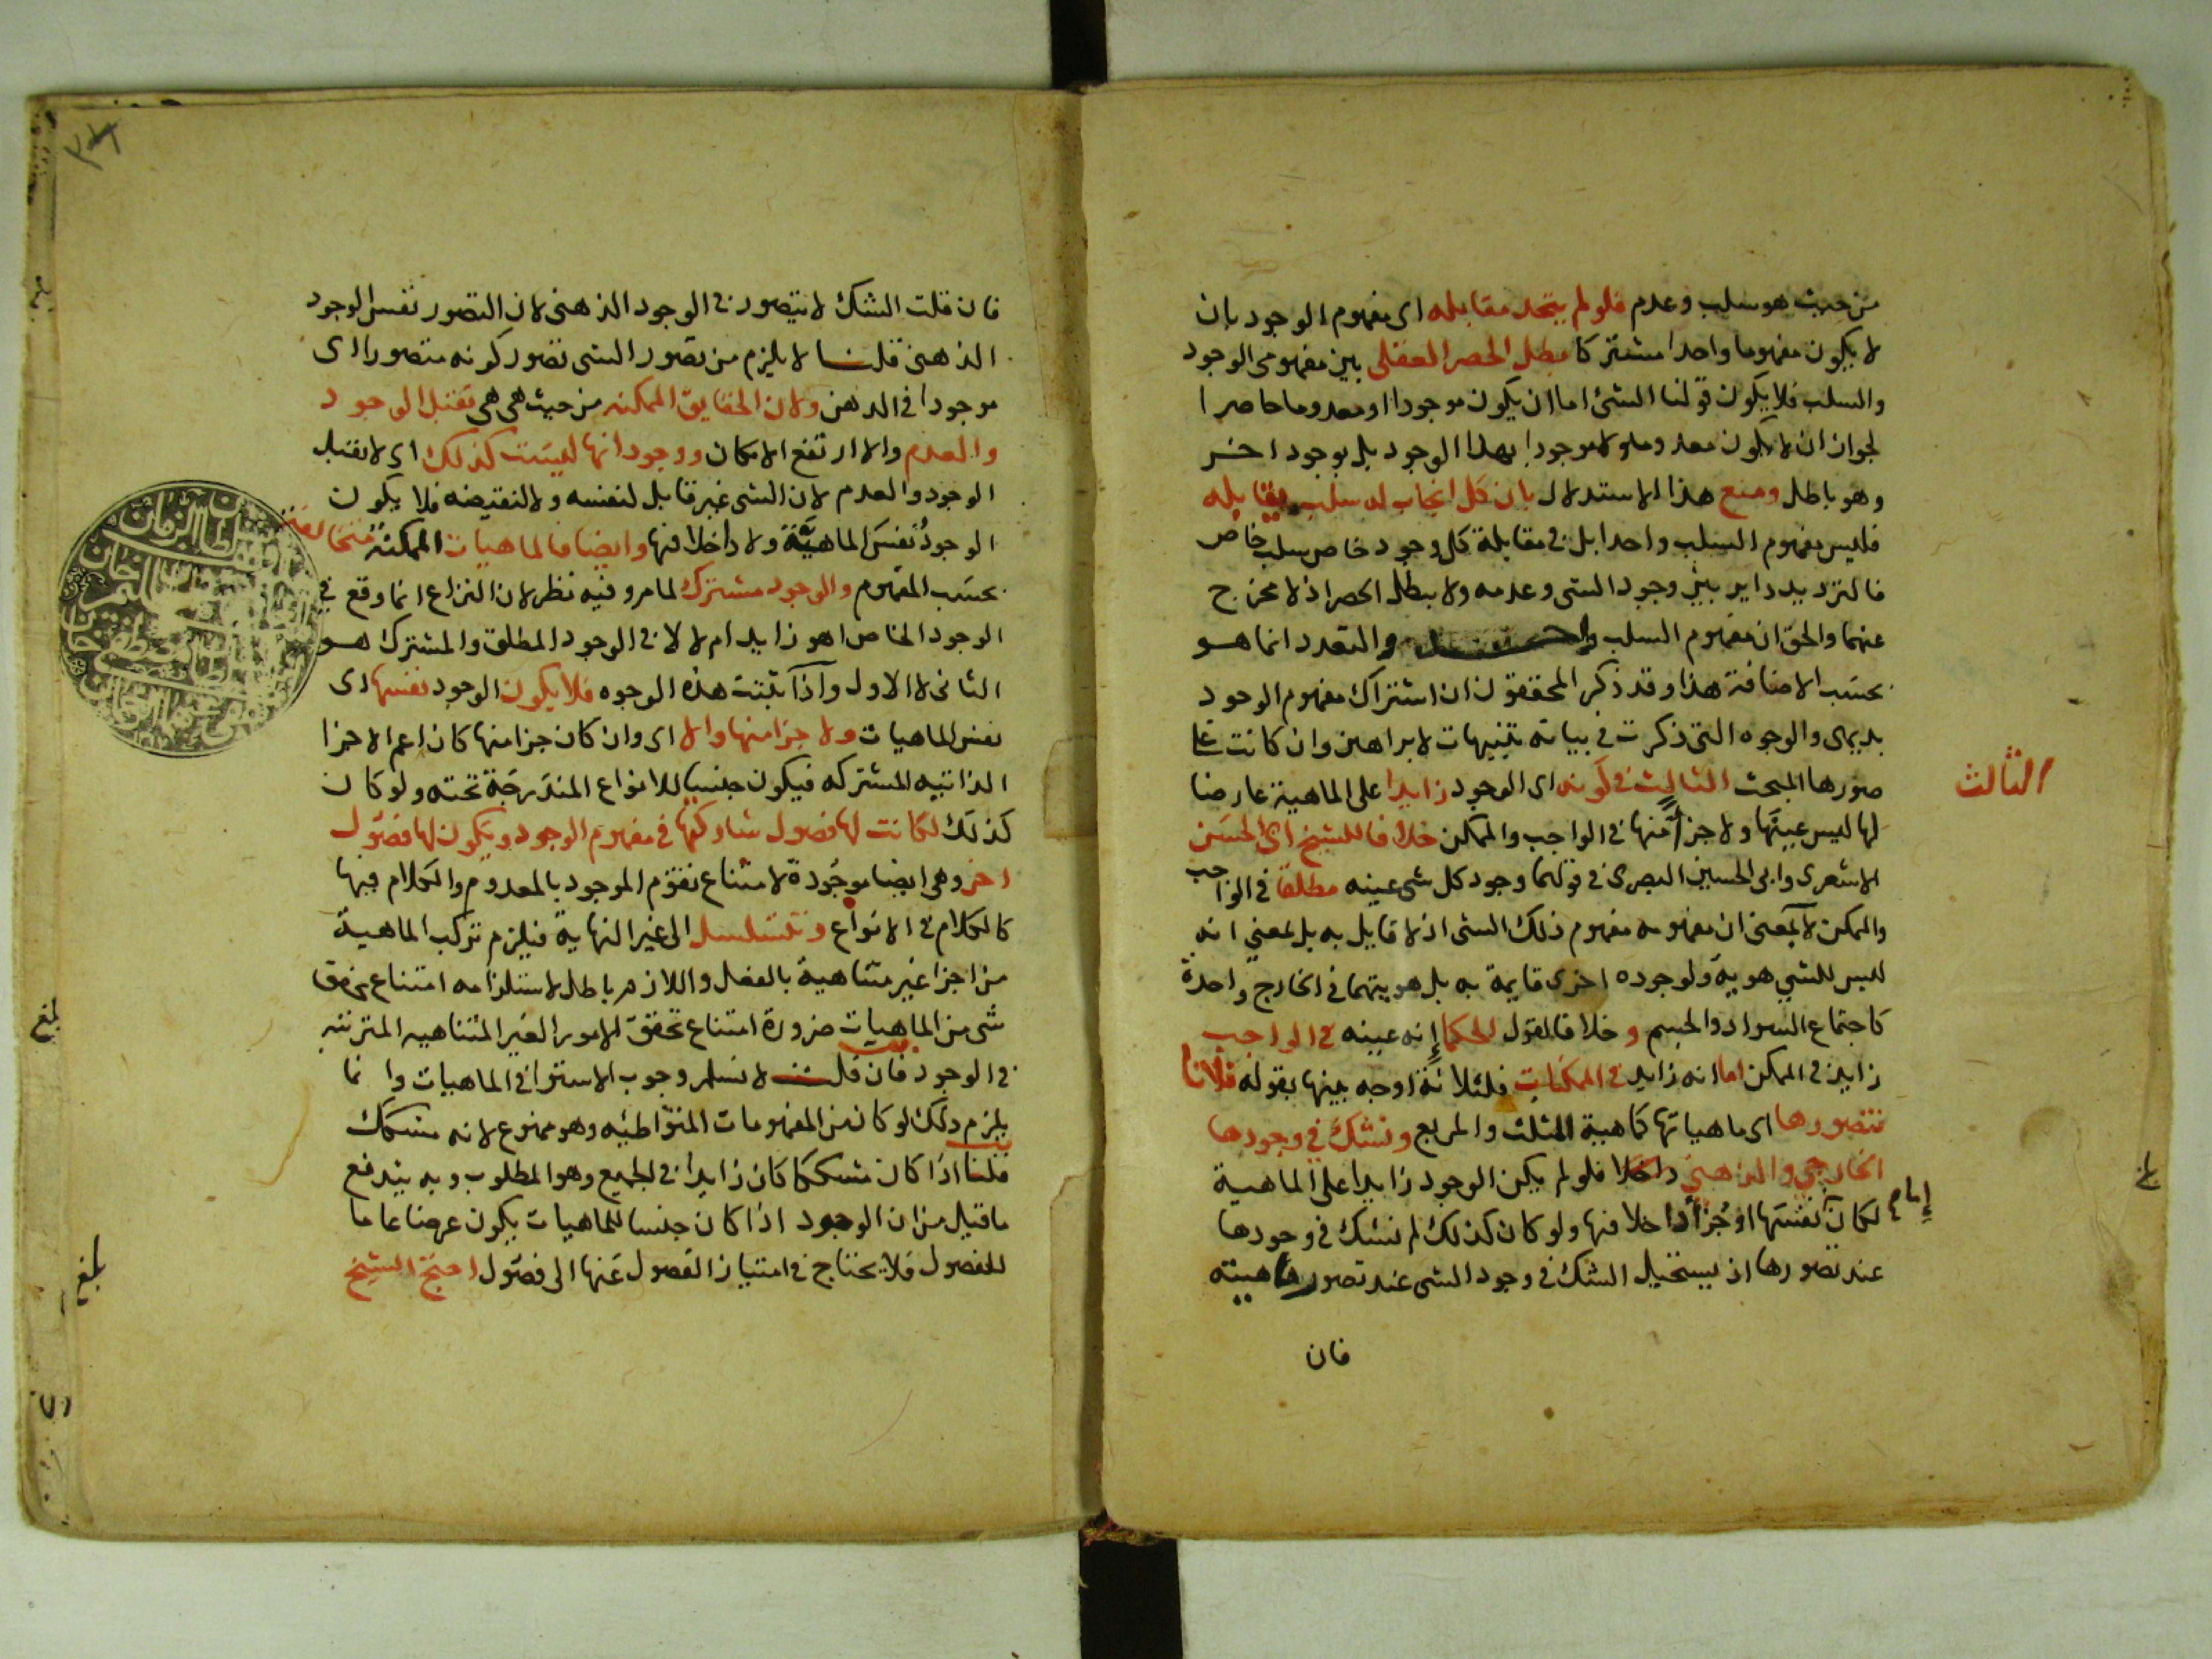 من حيث هو سلب وعدم فلو لم يتحد مقابله اى مفهوم الوجود بان
لا يكون مفهوما واحدا مشتركا بطل الحصر العقلى بين مفهومى الوجود
والسلب فلا يكون قولنا الشئ اما ان يكون موجودا او معدوما حاصرا
لجواز ان لا يكون معدوما ولا موجودا بهذا الوجود بل بوجود اخر
وهو باطل ومنع هذا الاستدلال بان كل ايجاب له سلب يقابله
فليس مفهوم السلب واحدا بل فى مقابلة كل وجود خاص سلب خاص
فالترديد داير بين وجود الشى وعدمه ولا يبطل الحصر اذ لا مخرج
عنهما والحق ان مفهوم السلب واحد والتعدد انما هو
بحسب الاضافة هذا وقد ذكر المحققون ان اشتراك مفهوم الوجود
بديهى والوجوه التى ذكرت فى بيانه تنبيهات لا براهين وان كانت على
صورها المبحث الثالث فى كونه اى الوجود زايدا على الماهية عارضا
الثالث
لها ليس عينها ولا جزأ منها فى الواجب والممكن خلافا للشيخ ابى الحسن
الاشعرى وابى الحسين البصرى فى قولهما وجود كل شى عينه مطلقا فى الواجب
والممكن لا بمعنى ان مفهومه مفهوم ذلك الشى اذ لا قايل به بل بمعنى انه
ليس للشيى هوية ولوجوده اخرى قايمة به بل هويتهما فى الخارج واحدة
كاجتماع السواد والجسم وخلافا لقول الحكما إنه عينه فى الواجب
زايد فى الممكن اما انه زايد فى الممكنات فلثلاثة اوجه بينها بقوله فلانا
نتصورها اى ماهياتها كماهية المثلث والمربع ونشك فى وجودها
الخارجى والذهنى فلو لم يكن الوجود زايدا على الماهية
لكان نفسها او جزأ داخلا فيها ولو كان كذلك لم نشك فى وجودها
عند تصورها اذ يستحيل الشك فى وجود الشى عند تصور ماهيته
فان
فان قلت الشك لا يتصور فى الوجود الذهنى لان التصور نفس الوجود
الذهنى قلنا لا يلزم من تصور الشى تصور كونه متصورا اى
موجودا فى الذهن ولان الحقايق الممكنه من حيث هى هى تقبل الوجود
والعدم والا ارتفع الامكان ووجوداتها ليست كذلك اى لا تقبل
الوجود والعدم لان الشى غير قابل لنفسه ولا لنقيضه فلا يكون
الوجود نفس الماهية ولا داخلا فيها وايضا فالماهيات الممكنة متخالفة
بحسب المفهوم والوجود مشترك لما مر وفيه نظر لان النزاع انما وقع فى
الوجود الخاص اهو زايد ام لا لا فى الوجود المطلق والمشترك هو
الثانى لا الاول واذا ثبتت هذه الوجوه فلا يكون الوجود نفسها اى
نفس الماهيات ولا جزا منها والا اى وان كان جزا منها كان اعم الاجزا
الذاتيه المشتركه فيكون جنسا للانواع المندرجة تحته ولو كان
كذلك لكانت لها فصول تشاركها فى مفهوم الوجود ويكون لها فصول
اخر وهى ايضا موجودة لامتناع تقوم الموجود بالمعدوم والكلام فيها
كالكلام فى الانواع وتتسلسل الى غير النهاية فيلزم تركب الماهية
من اجزا غير متناهية بالفعل واللازم باطل لاستلزامه امتناع تحقق
شى من الماهيات ضرورة امتناع تحقق الامور الغير المتناهيه المترتبه
فى الوجود فان قلت لا نسلم وجوب الاستوا فى الماهيات وانما
يلزم ذلك لو كان من المفهومات المتواطئه وهو ممنوع لانه مشكك
قلنا اذا كان مشككا كان زايدا فى الجميع وهو المطلوب وبه يندفع
ما قيل من ان الوجود اذا كان جنسا للماهيات يكون عرضا عاما
للفصول فلا يحتاج فى امتياز الفصول عنها الى فصول احتج الشيخ
بلغ
بلغ